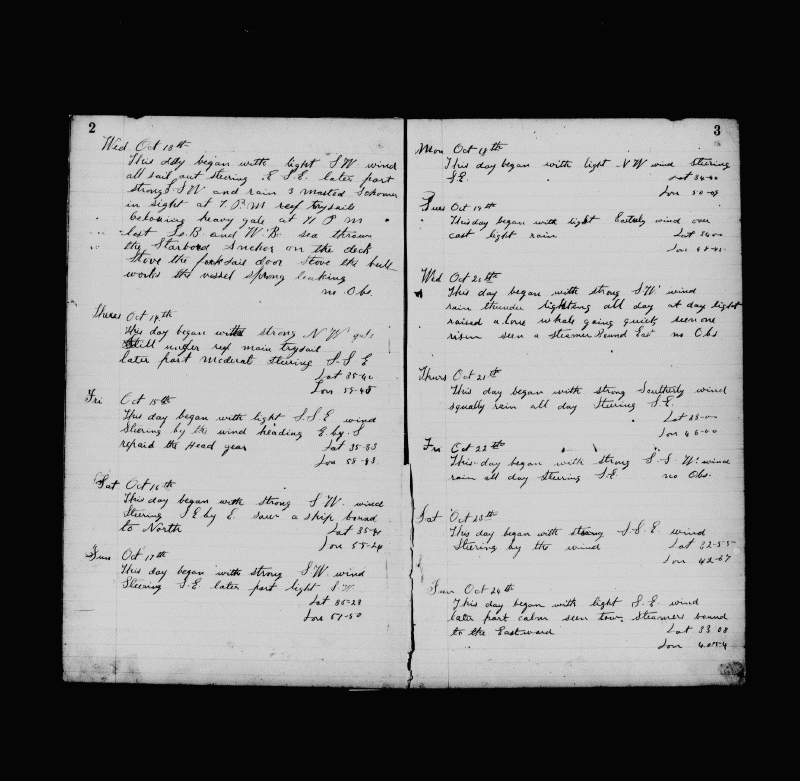 2
Wed Oct 13th
This day began with light S.W. wind
all sail out steering E.S.E. later part
strong S.W and rain 3 masted Schooner
in sight at 7. P.M reef trysails
becoming heavy gale at 11 P M
lost Lo.B and W.B. sea thrown
the Starbord Anchor on the deck
Stove the forksail door Stove the bull
works the vessel sprong leaking
no Obs.
Thurs Oct 14th
This day began with strong N.W gale
Still under reef main trysail
later part Moderat steering S.S.E
Lat 35-40
Lon 59-45
Fri Oct 15th
This day began with light S.S.E wind
Stering by the wind heading E by S
repaid the Head gear
Lat 35-33
Lon 58-43
Sat Oct 16th
This day began with strong S.W. wind
Steering S.E by E. saw a ship bound
to North
Lat 35-41
Lon 55-24
Sun Oct 17th
This day began with strong S.W. wind
Steering S.E. later part light S.W
Lat 35-29
Lon 51-50
3
Mon Oct 18th
This day began with light N.W wind steering
S.E.
Lat 34-40
Lon 50-09
Tues Oct 19th
This day began with light Easterly wind over
cast light rain
Lat 34-00
Lon 48-45
Wed Oct 20th
This day began with strong S.W wind
rain thunder lightning all day at day light
raised a lone whale going quick seen one
risin seen a steamer bound East no Obs
Thurs Oct 21st
This day began with strong Southerly wind
squally rain all day Steering S.E.
Lat 33-00
Lon 45-00
Fri Oct 22
This day began with strong S.S.W. wind
rain all day steering S.E no Obs.
Sat Oct 23th
This day began with strong S.S.E. wind
Steering by the wind
Lat 32-55
Lon 42-57
Sun Oct 24th
This day began with light S.E. wind
later part calm seen tow. Steamers bound
to the Eastward
Lat 33 03
Lon 40 54